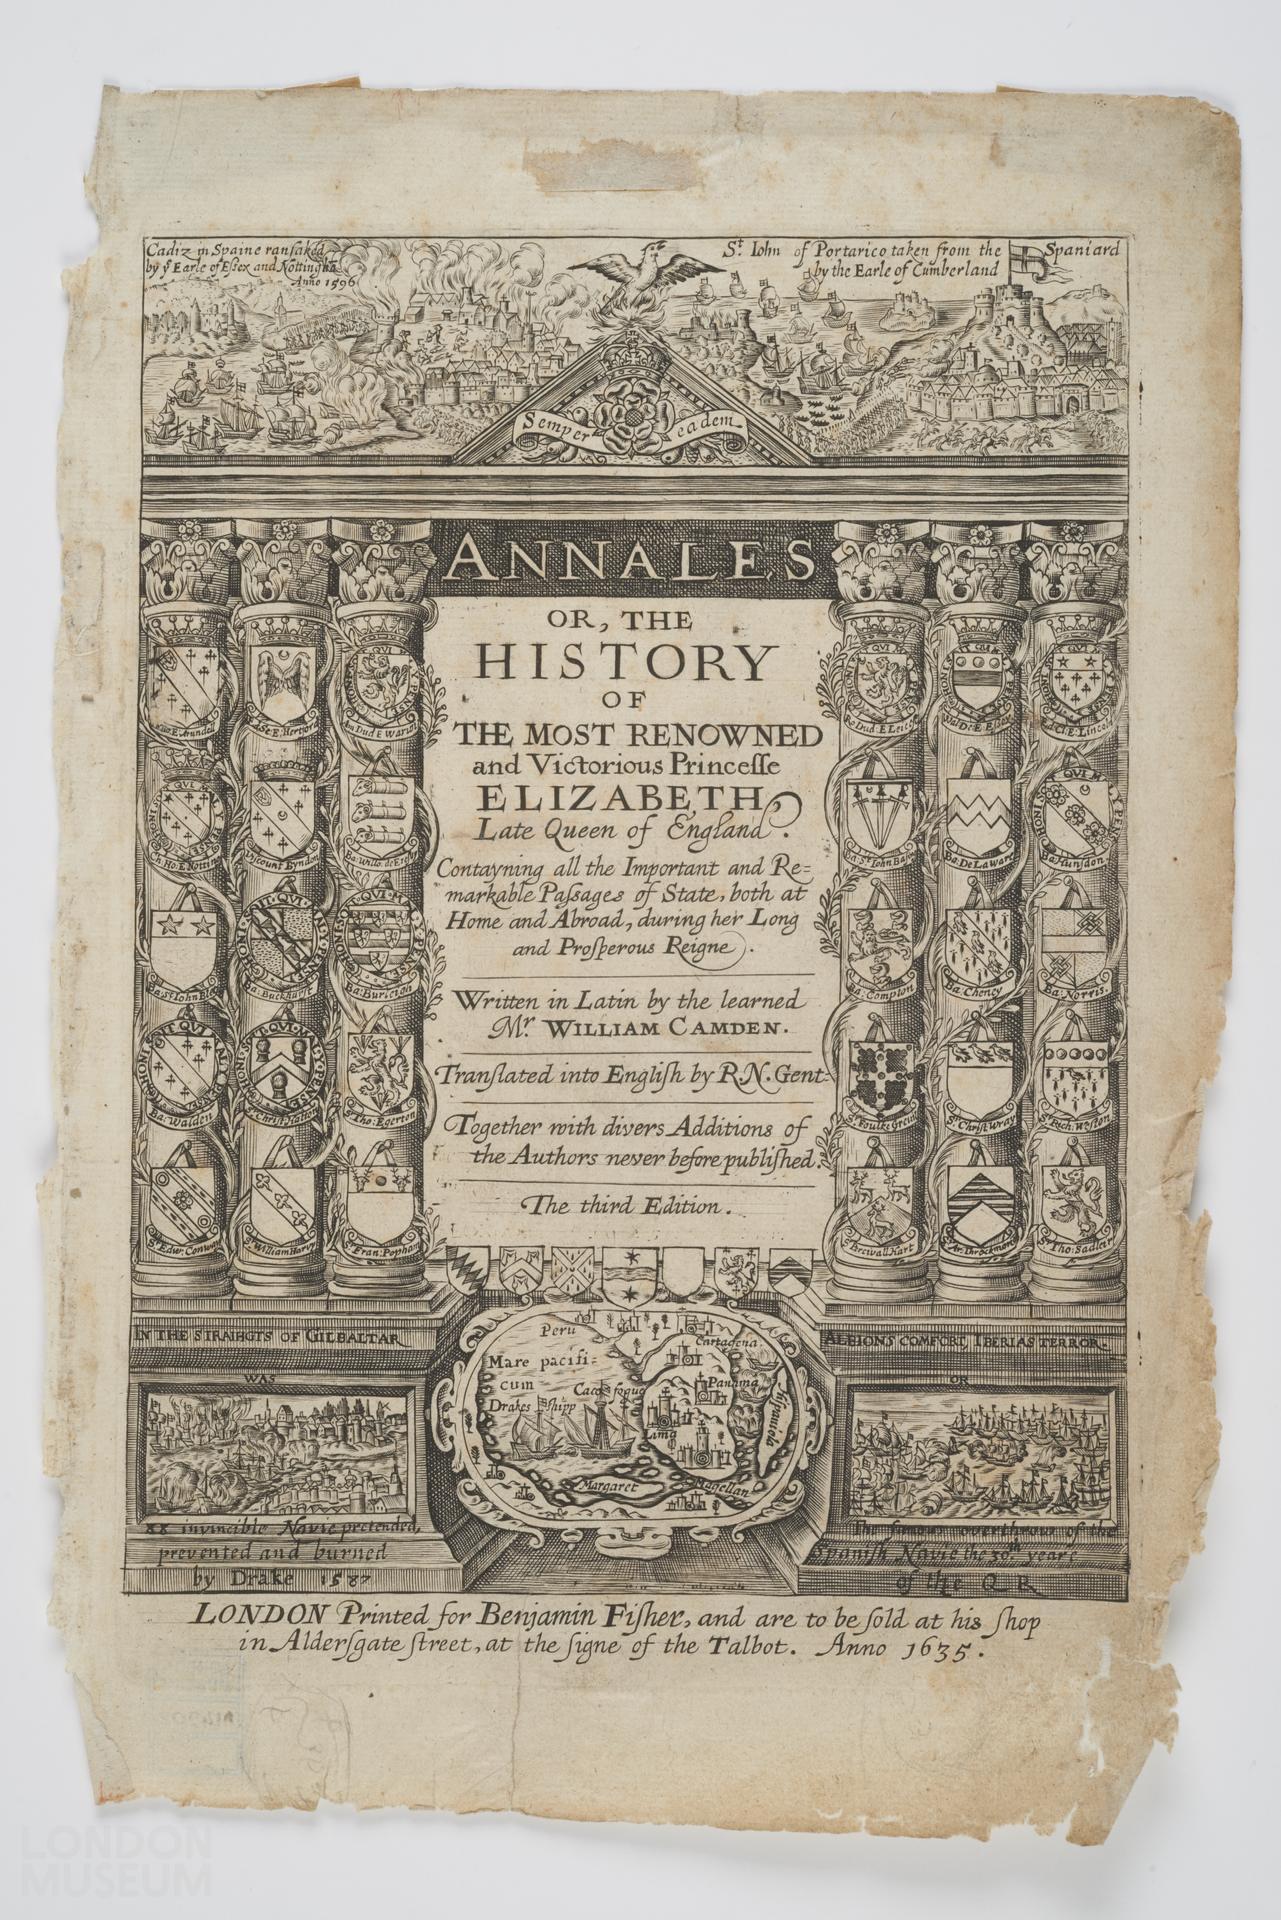 Cadiz in Spaine ransaked
by ẏ Earle of Essex and Nottingha
Anno 1596
St. Iohn of Portarico taken from the Spaniard
by the Earle of Cumberland
Semper eadem
ANNALES
OR, THE
HISTORY
OF
THE MOST RENOWNED
and Victorious Princesse
ELIZABETH,
Late Queen of England.
Contayning all the Important and Re=
markable Passages of State, both at
Home and Abroad, during her Long
and Prosperous Reigne.
Written in Latin by the learned
Mr. WILLIAM CAMDEN.
Translated into English by R.N. Gent:
Together with divers Additions of
the Authors never before published.
The third Edition.
Viscount Byndon
Ba: Buckhurst
Ba: Burleigh
Ba: Walden
Sr Christ: Hatton
Sr Tho: Egerton
Sr William Harvy
Sr Fran: Popham
Ba: De La Ware
Ba: Hunsdon
Ba: Compton
Ba: Cheney
Ba: Norris.
Sr Foulk: Grevil
Sr Christ: Wray
Sr Rich: Weston
Sr Percivall Hart
Sr Ar: Throckmorton
Sr Tho: Sadleir
IN THE STRAIHGTS OF GILBALTAR
WAS
XX invincible Navie pretended,
prevented and burned
by Drake 1587
Peru
Cartagena
Mare pacifi=
cum
Panama
Drakes shipp
Cacofogue
Hispaniola
Lima
Margaret
Magellan
ALBIONS COMFORT, IBERIAS TERROR.
OR
The famous overthrow of the
Spanish Navie the 30th yeare
of the Q R
LONDON Printed for Benjamin Fisher, and are to be sold at his shop
in Aldersgate street, at the signe of the Talbot. Anno 1635.
LONDON
MUSEUM